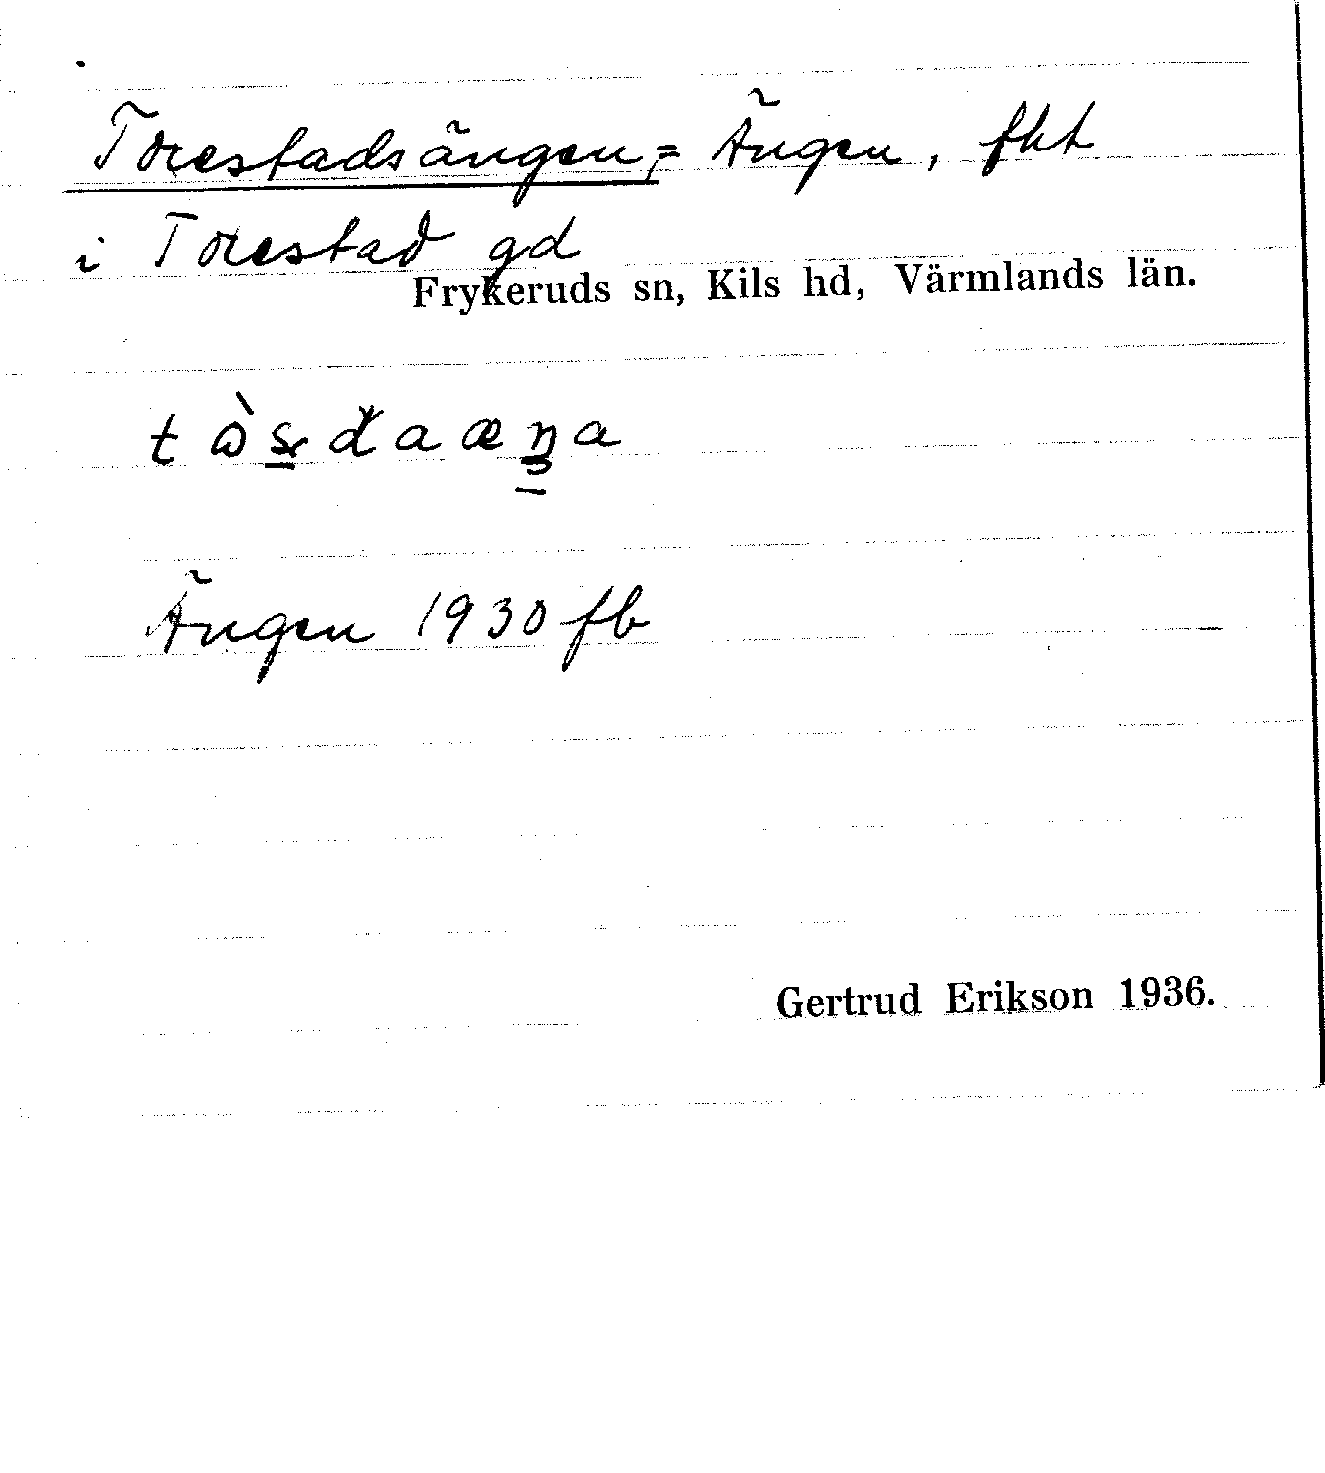 Torestadsängen, = Ängen, fht
i Torestad gd
Frykeruds sn, Kils hd, Värmlands län.
Ängen 1930 fb
Gertrud Erikson 1936.